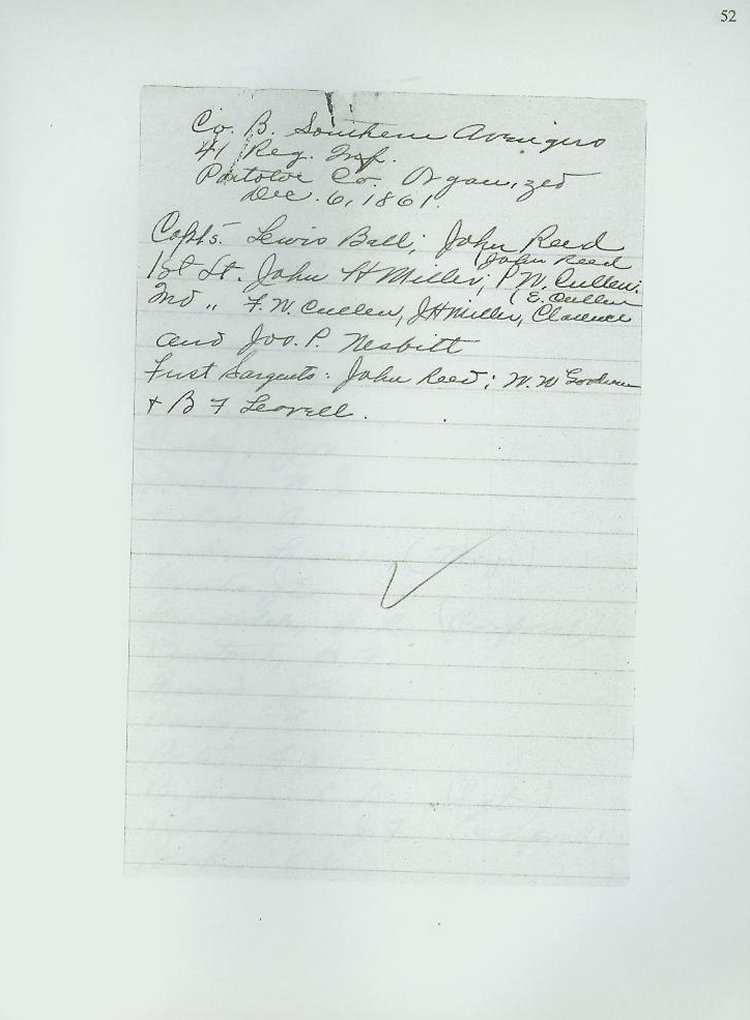 52
Co. B. Southern Avengers
41 Reg. Inf.
Pontotoc Co. Organized
Dec. 6, 1861.
Capts. Lewis Ball; John Reed
(John Reed
1st Lt. John H Miller; P. W. Cullen.
(E. Cullen
2nd " F. W. Cullen, J H Miller, Clarence
and Joo. P. Nesbitt
First Sargents: John Reed; W. W Goodwin
+ B F Leavell.